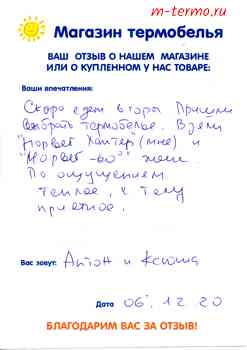 m-termo.ru
Магазин термобелья
ВАШ ОТЗЫВ О НАШЕМ МАГАЗИНЕ
ИЛИ О КУПЛЕННОМ У НАС ТОВАРЕ:
Ваши впечатления:
Скоро едем в горы. Пришли
выбрать термобелье. Взяли
"Норвег Хантер" (мне) и
"Норвег -60°" жене
По ощущениям
теплое, к тому
приятное.
Вас зовут: Антон и Ксюша
Дата 06. 12. 20
БЛАГОДАРИМ ВАС ЗА ОТЗЫВ!